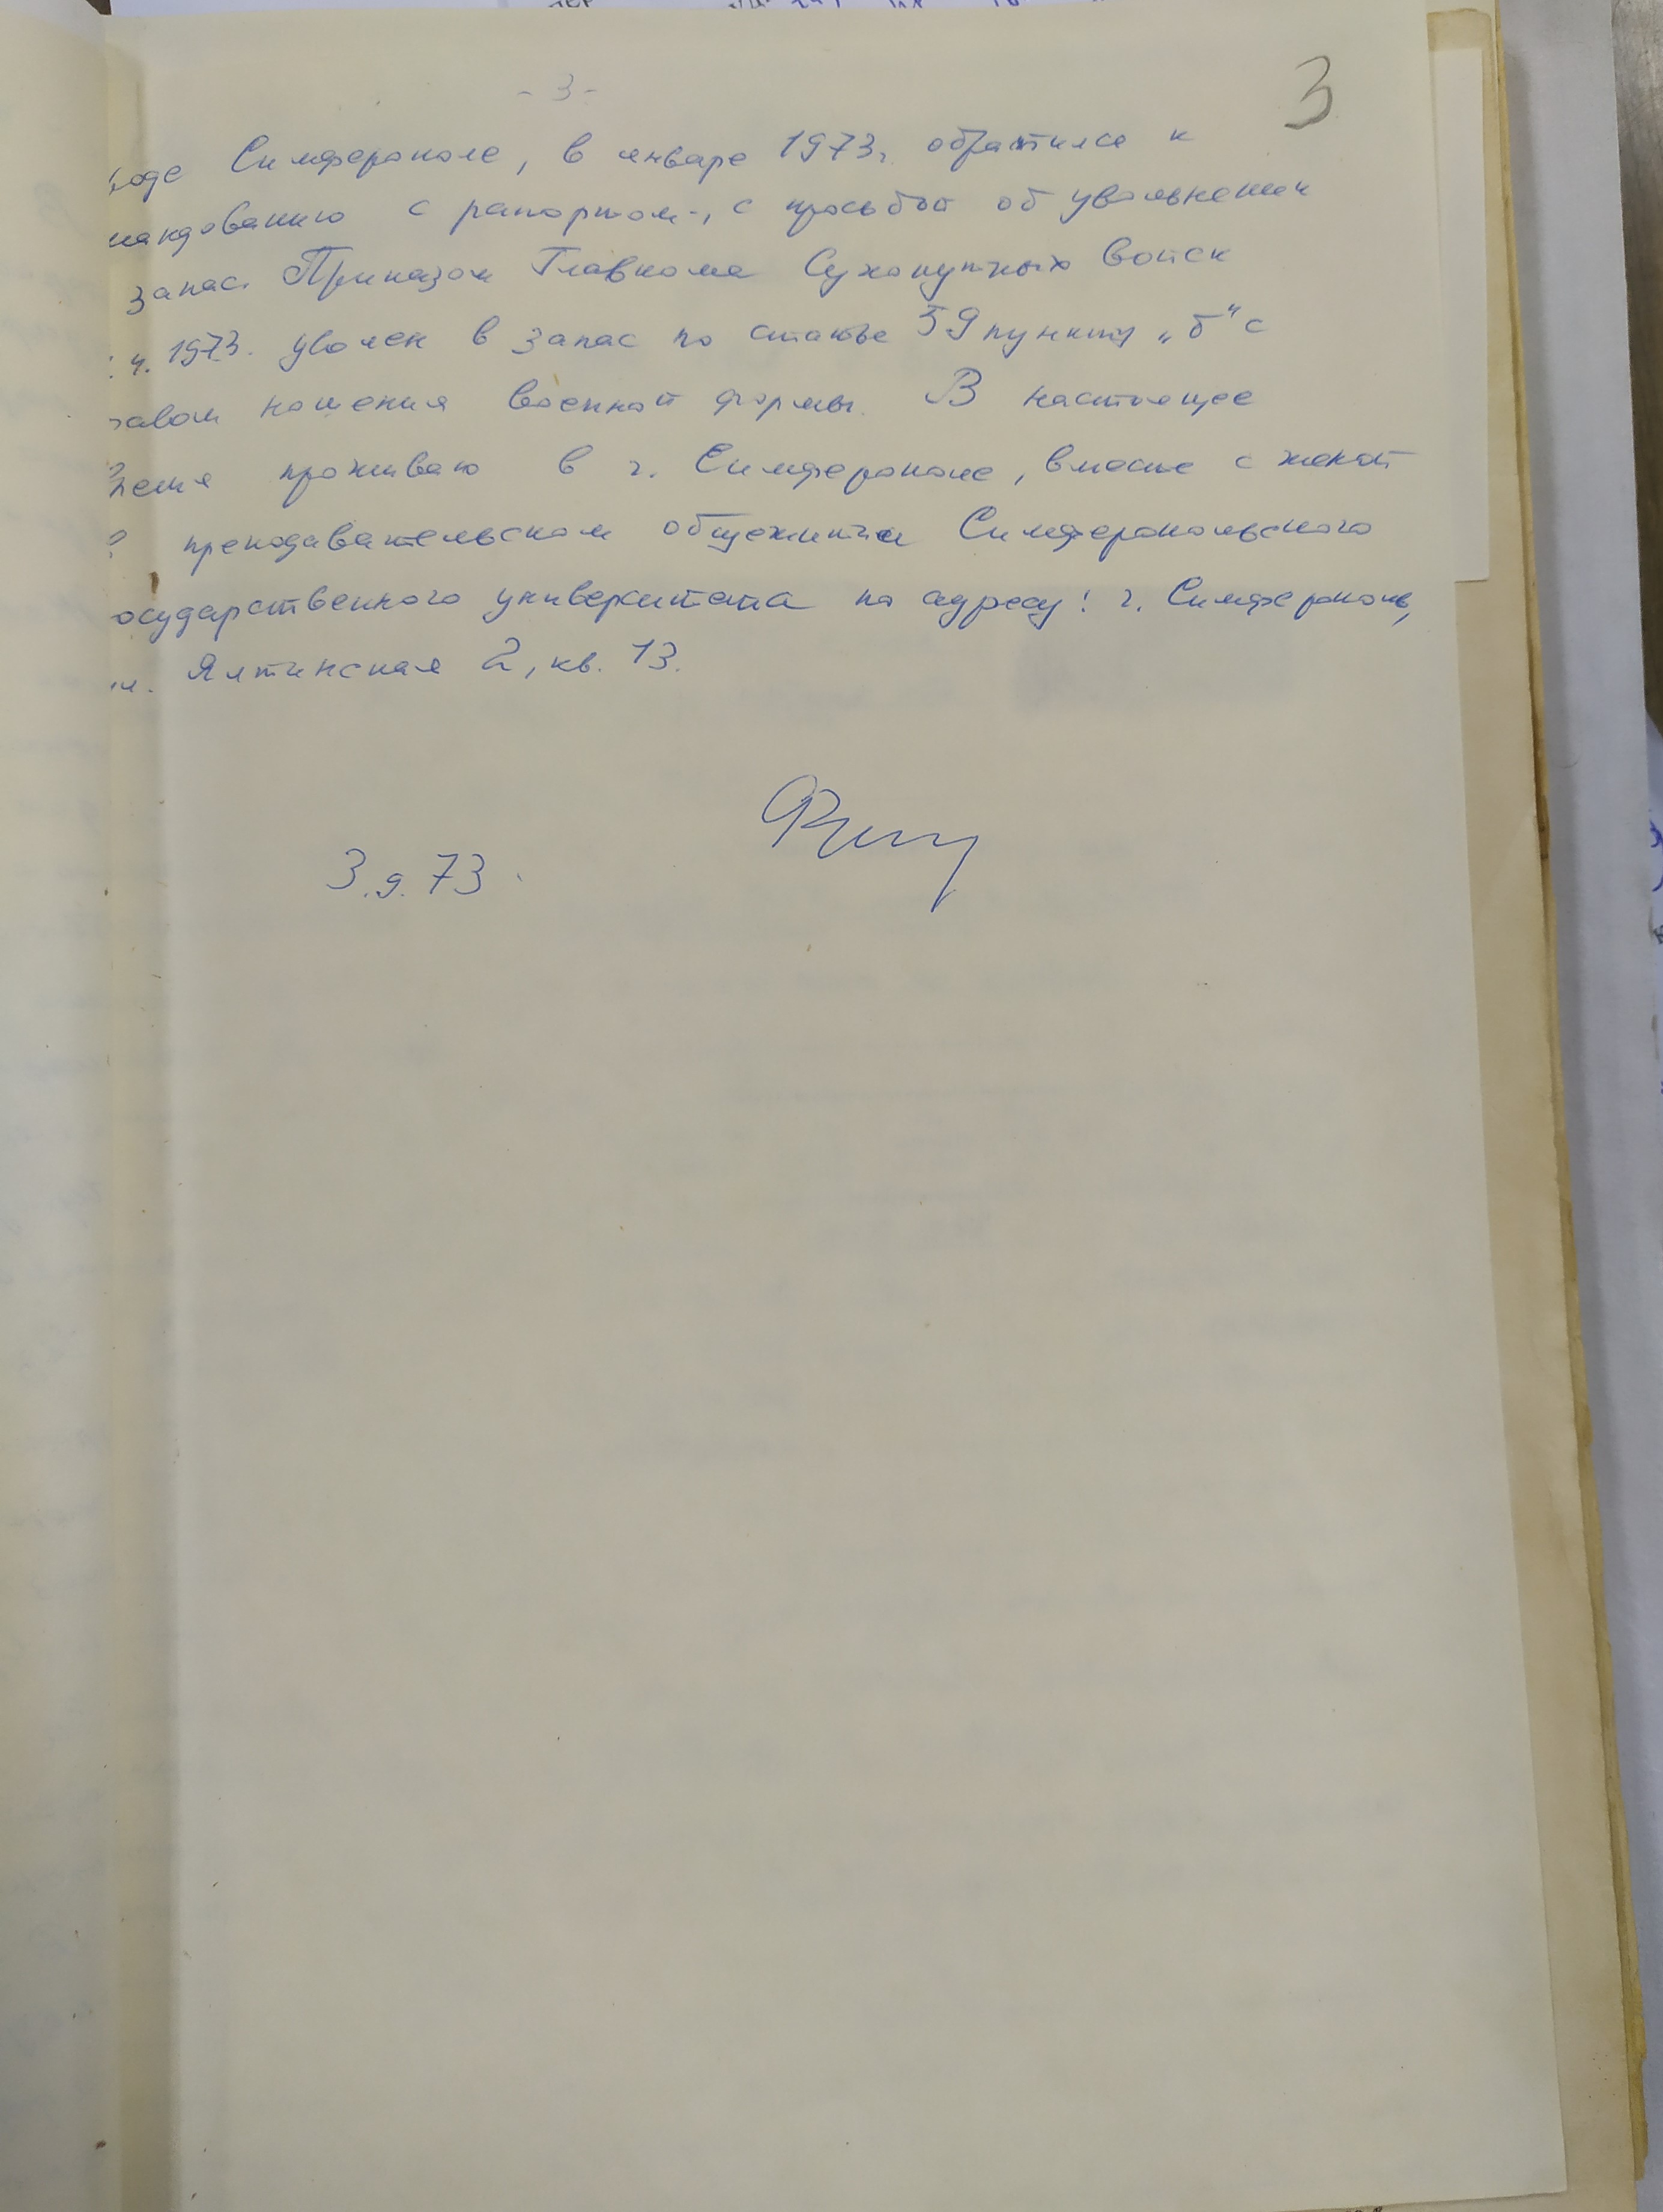 - 3 -
3
роде Симферополе, в январе 1973г. обратился к
мандованию с рапортом, с просьбой об увольнении
запас. Приказом Главкома Сухопутных войск
ч. 1973. уволен в запас по статье 59 пункту „б“ с
равом ношения военной формы. В настоящее
время проживаю в г. Симферополе, вместе с женой
в преподавательском общежитии Симферопольского
осударственного университета по адресу: г. Симферополь,
ул. Ялтинская 2, кв. 13.
3.9.73